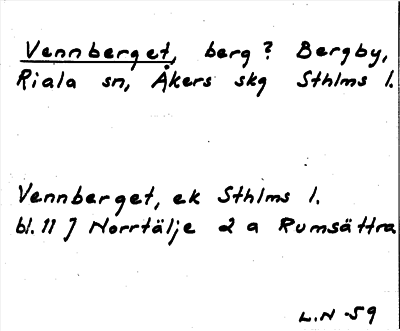 Vennberget, berg? Bergby,
Riala sn, Åkers skg Sthlms l.
Vennberget, ek Sthlms l.
bl. 11 J Norrtälje 2 a Rumsättra
L.N -59